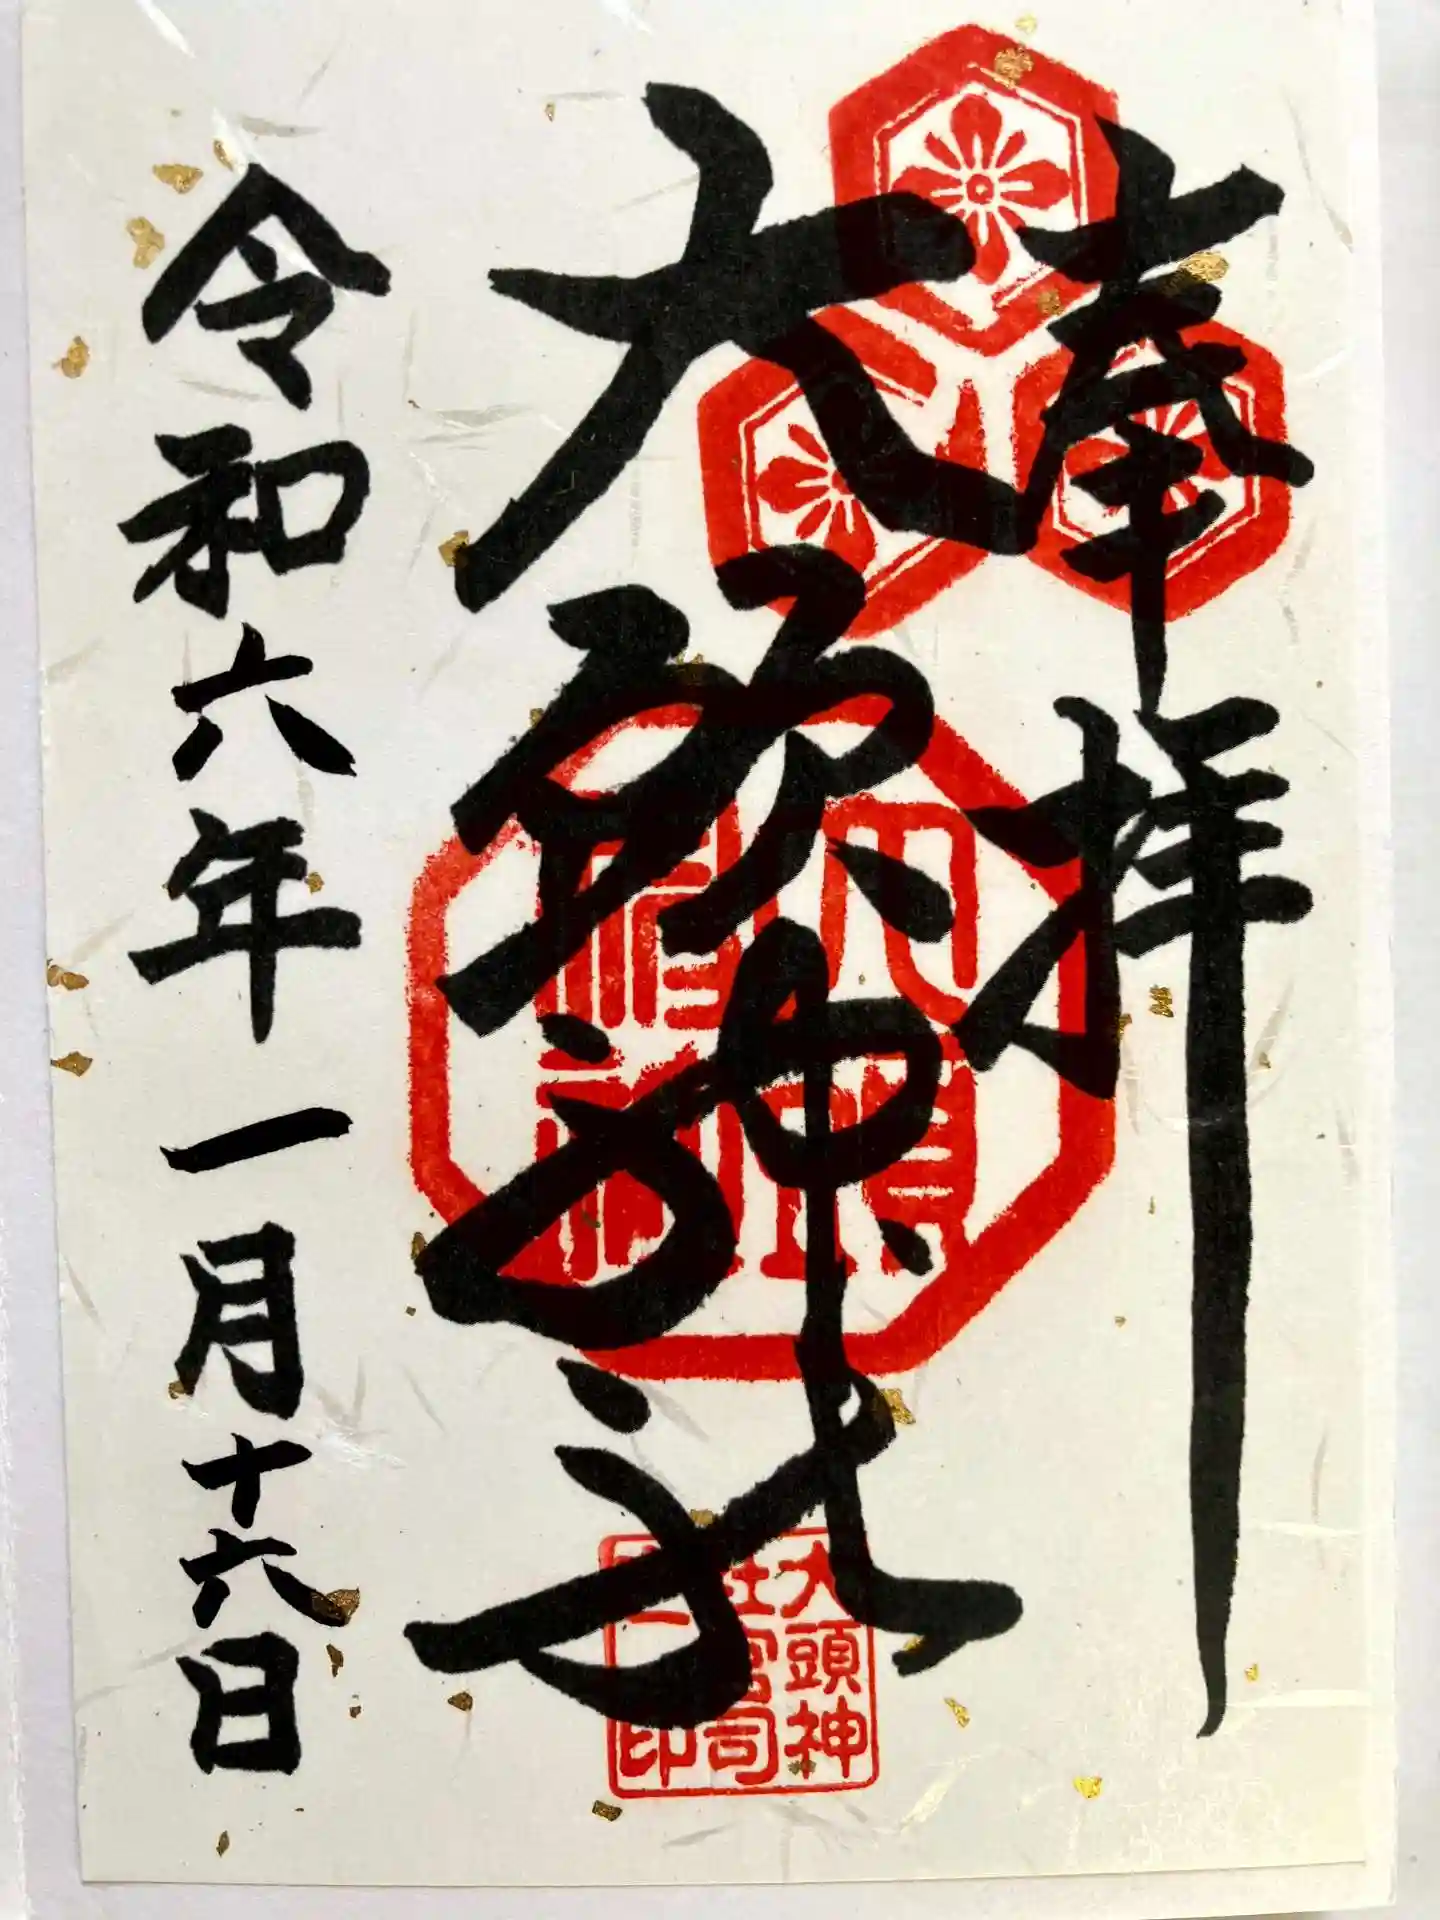 奉拝
大頭神社
令和六年一月十六日
大頭神
社宮司
印